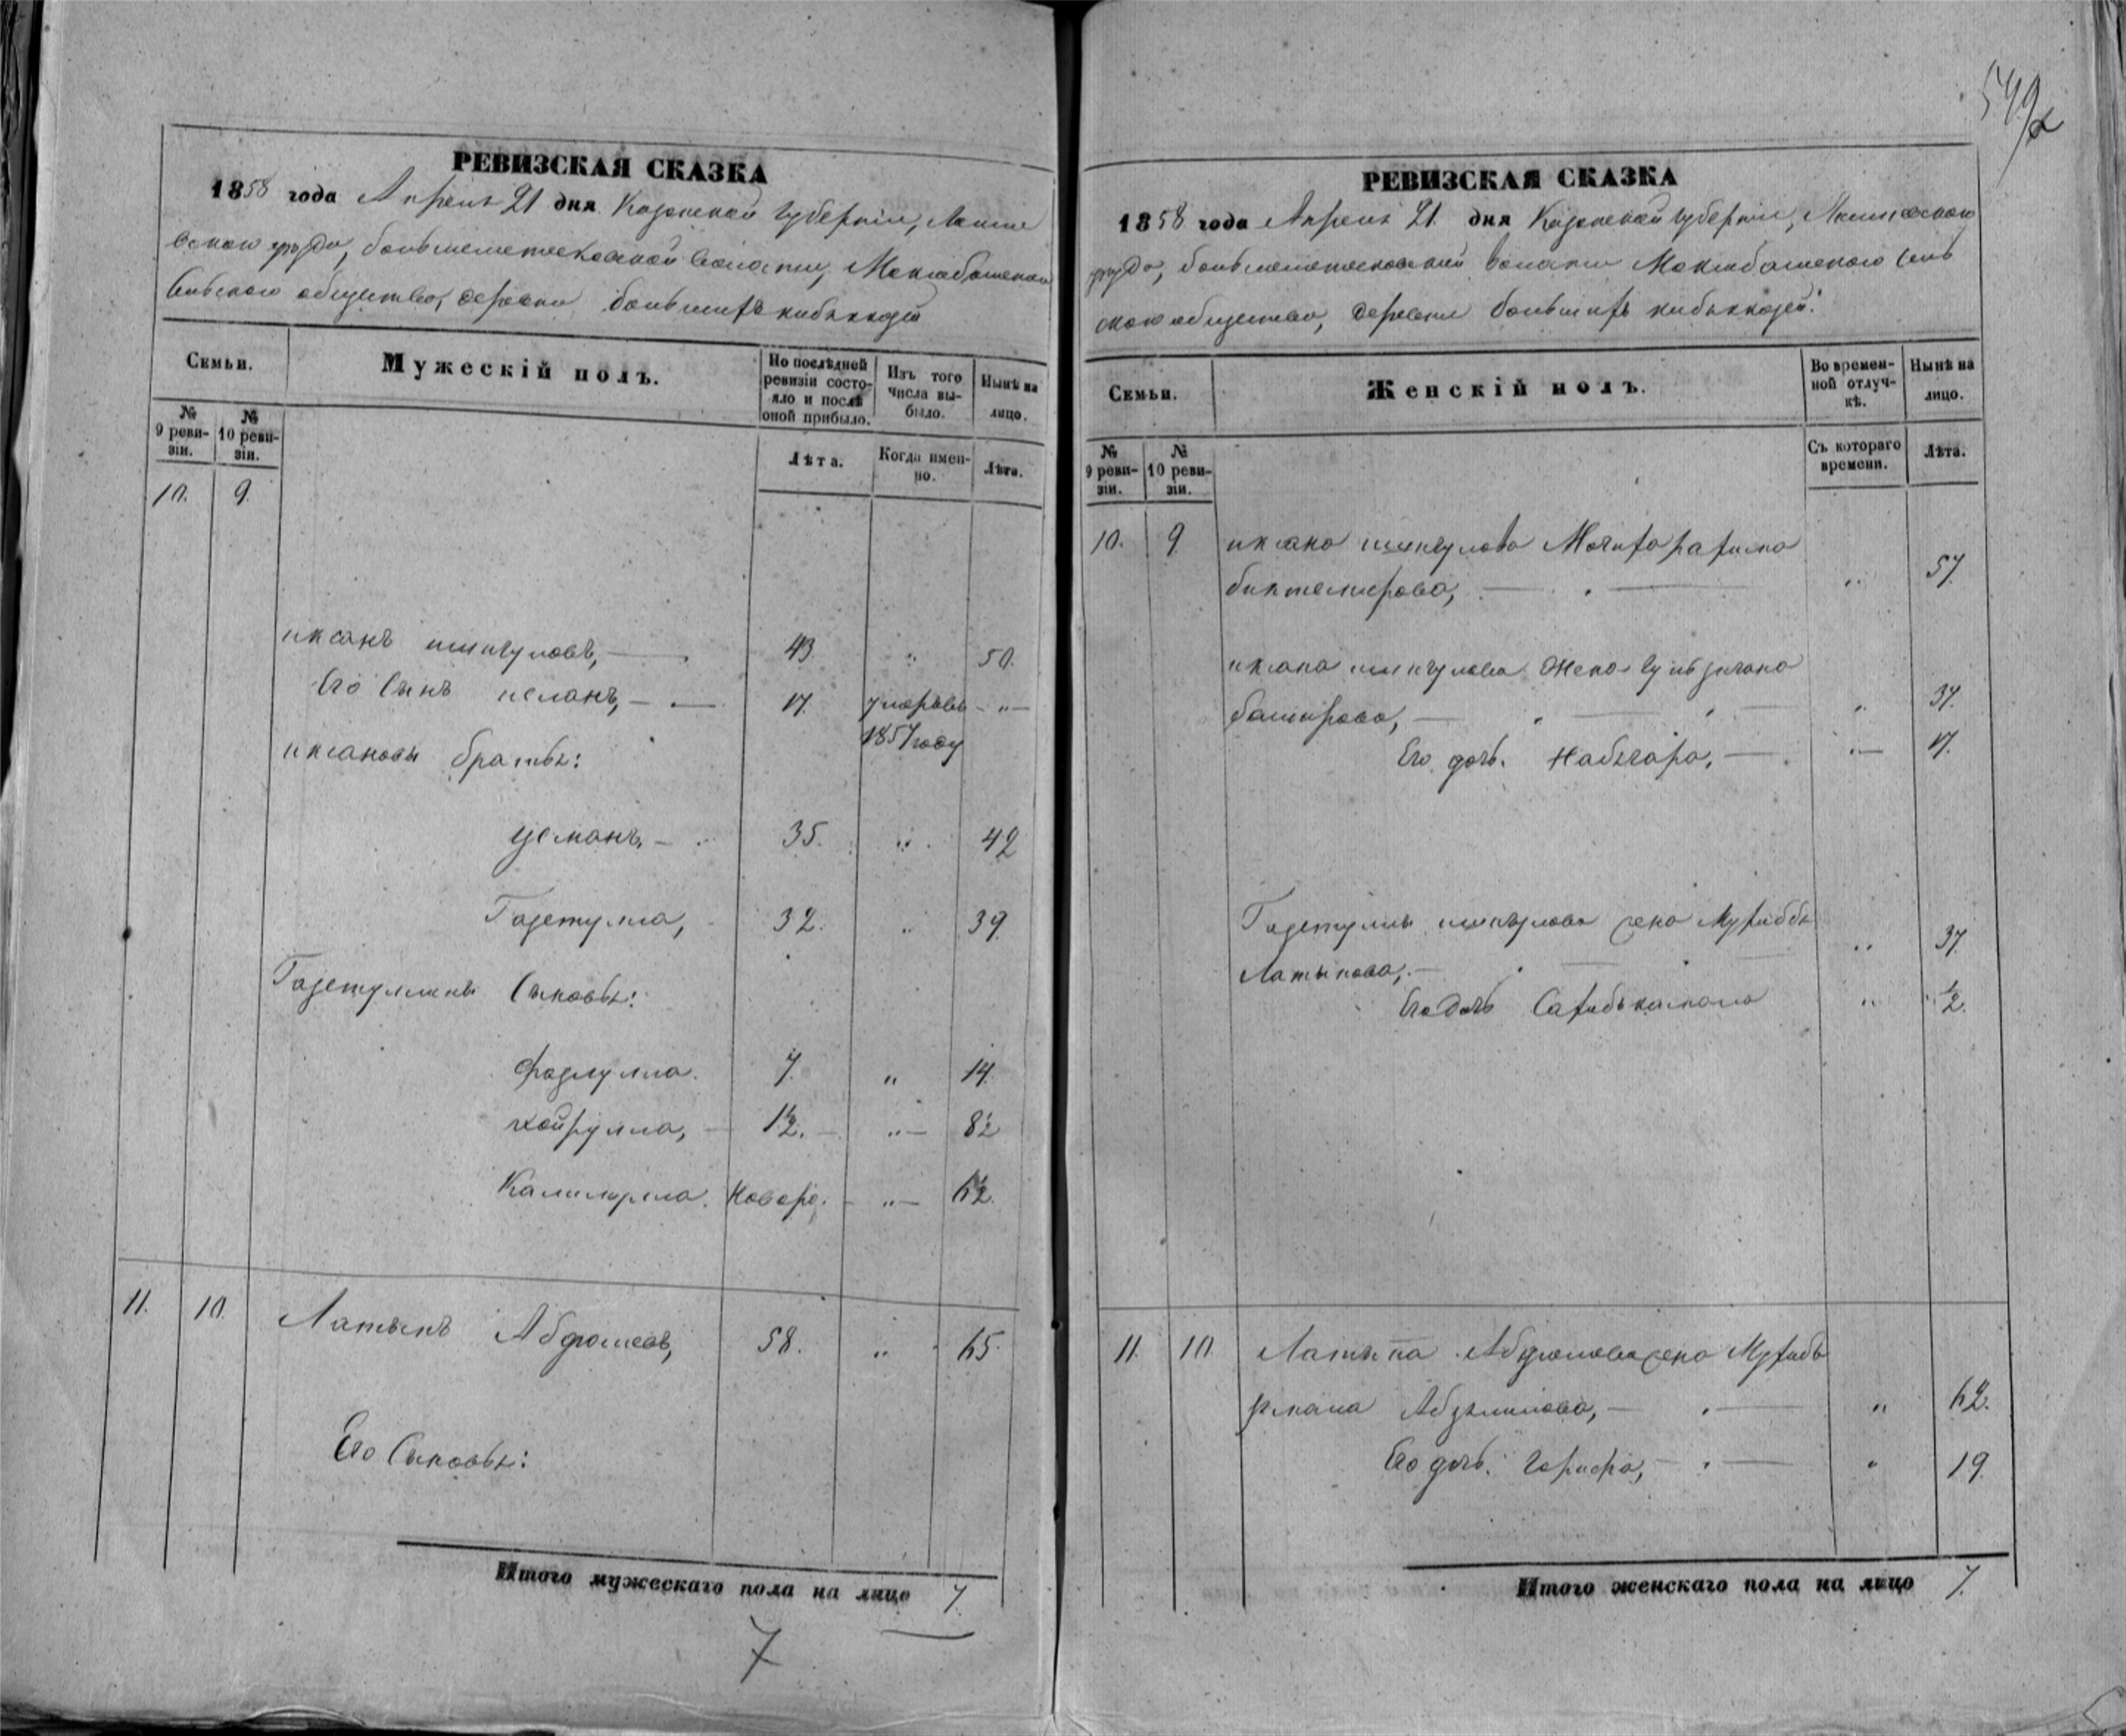 РЕВИЗСКАЯ СКАЗКА
1858 года Апреля 21 дня Казанской губернiи, Лаише
вскаго уезда, большеметесковской волости, Маклабашскаго
сельскаго общества, деревни большихъ кибякозей
Семьи.
Мужескiй полъ.
По послѣдней ревизiи состояло и послѣ оной прибыло.
Изъ того числа выбыло.
Нынѣ на лицо.
№ 9 ревизiи.
№ 10 ревизiи.
Лѣта.
Когда именно.
Лѣта.
10. 9.
иксанъ ишкуловъ, 43 „ 50.
Его Сынъ 17. умеръ въ „
1857 году
иксановы братья:
усманъ, 35. „ 42
Газетулла, 32. „ 39.
Газетуллины Сыновья:
Фазлулла. 7. „ 14.
хайрулла, 1½. „ 8½
Калимулла. Новорож. „ 6½.
11. 10. Латыпъ 58. „ 65.
Его Сыновья:
Итого мужескаго пола на лицо 7.
7
549
РЕВИЗСКАЯ СКАЗКА
1858 года Апреля 21. дня Казанской губернiи, Лаишевскаго
уезда, большеметесковской волости Маклабашскаго сель
скаго общества, деревни большихъ кибякозей:
Семьи.
Женскiй полъ.
Во временной отлучкѣ.
Нынѣ на лицо.
№ 9 ревизiи.
№ 10 ревизiи.
Съ котораго времени.
Лѣта.
10. 9. иксана ишкулова
биктемирова, „ 57.
иксана ишкулова жена
баширова, „ 37.
Его дочь. „ 17.
Газетуллы ишкулова жена
Латыпова, „ 37.
Его дочь „ ½.
11. 10. Латыпа жена
„ 62.
Его дочь. „ 19.
Итого женскаго пола на лицо 7.